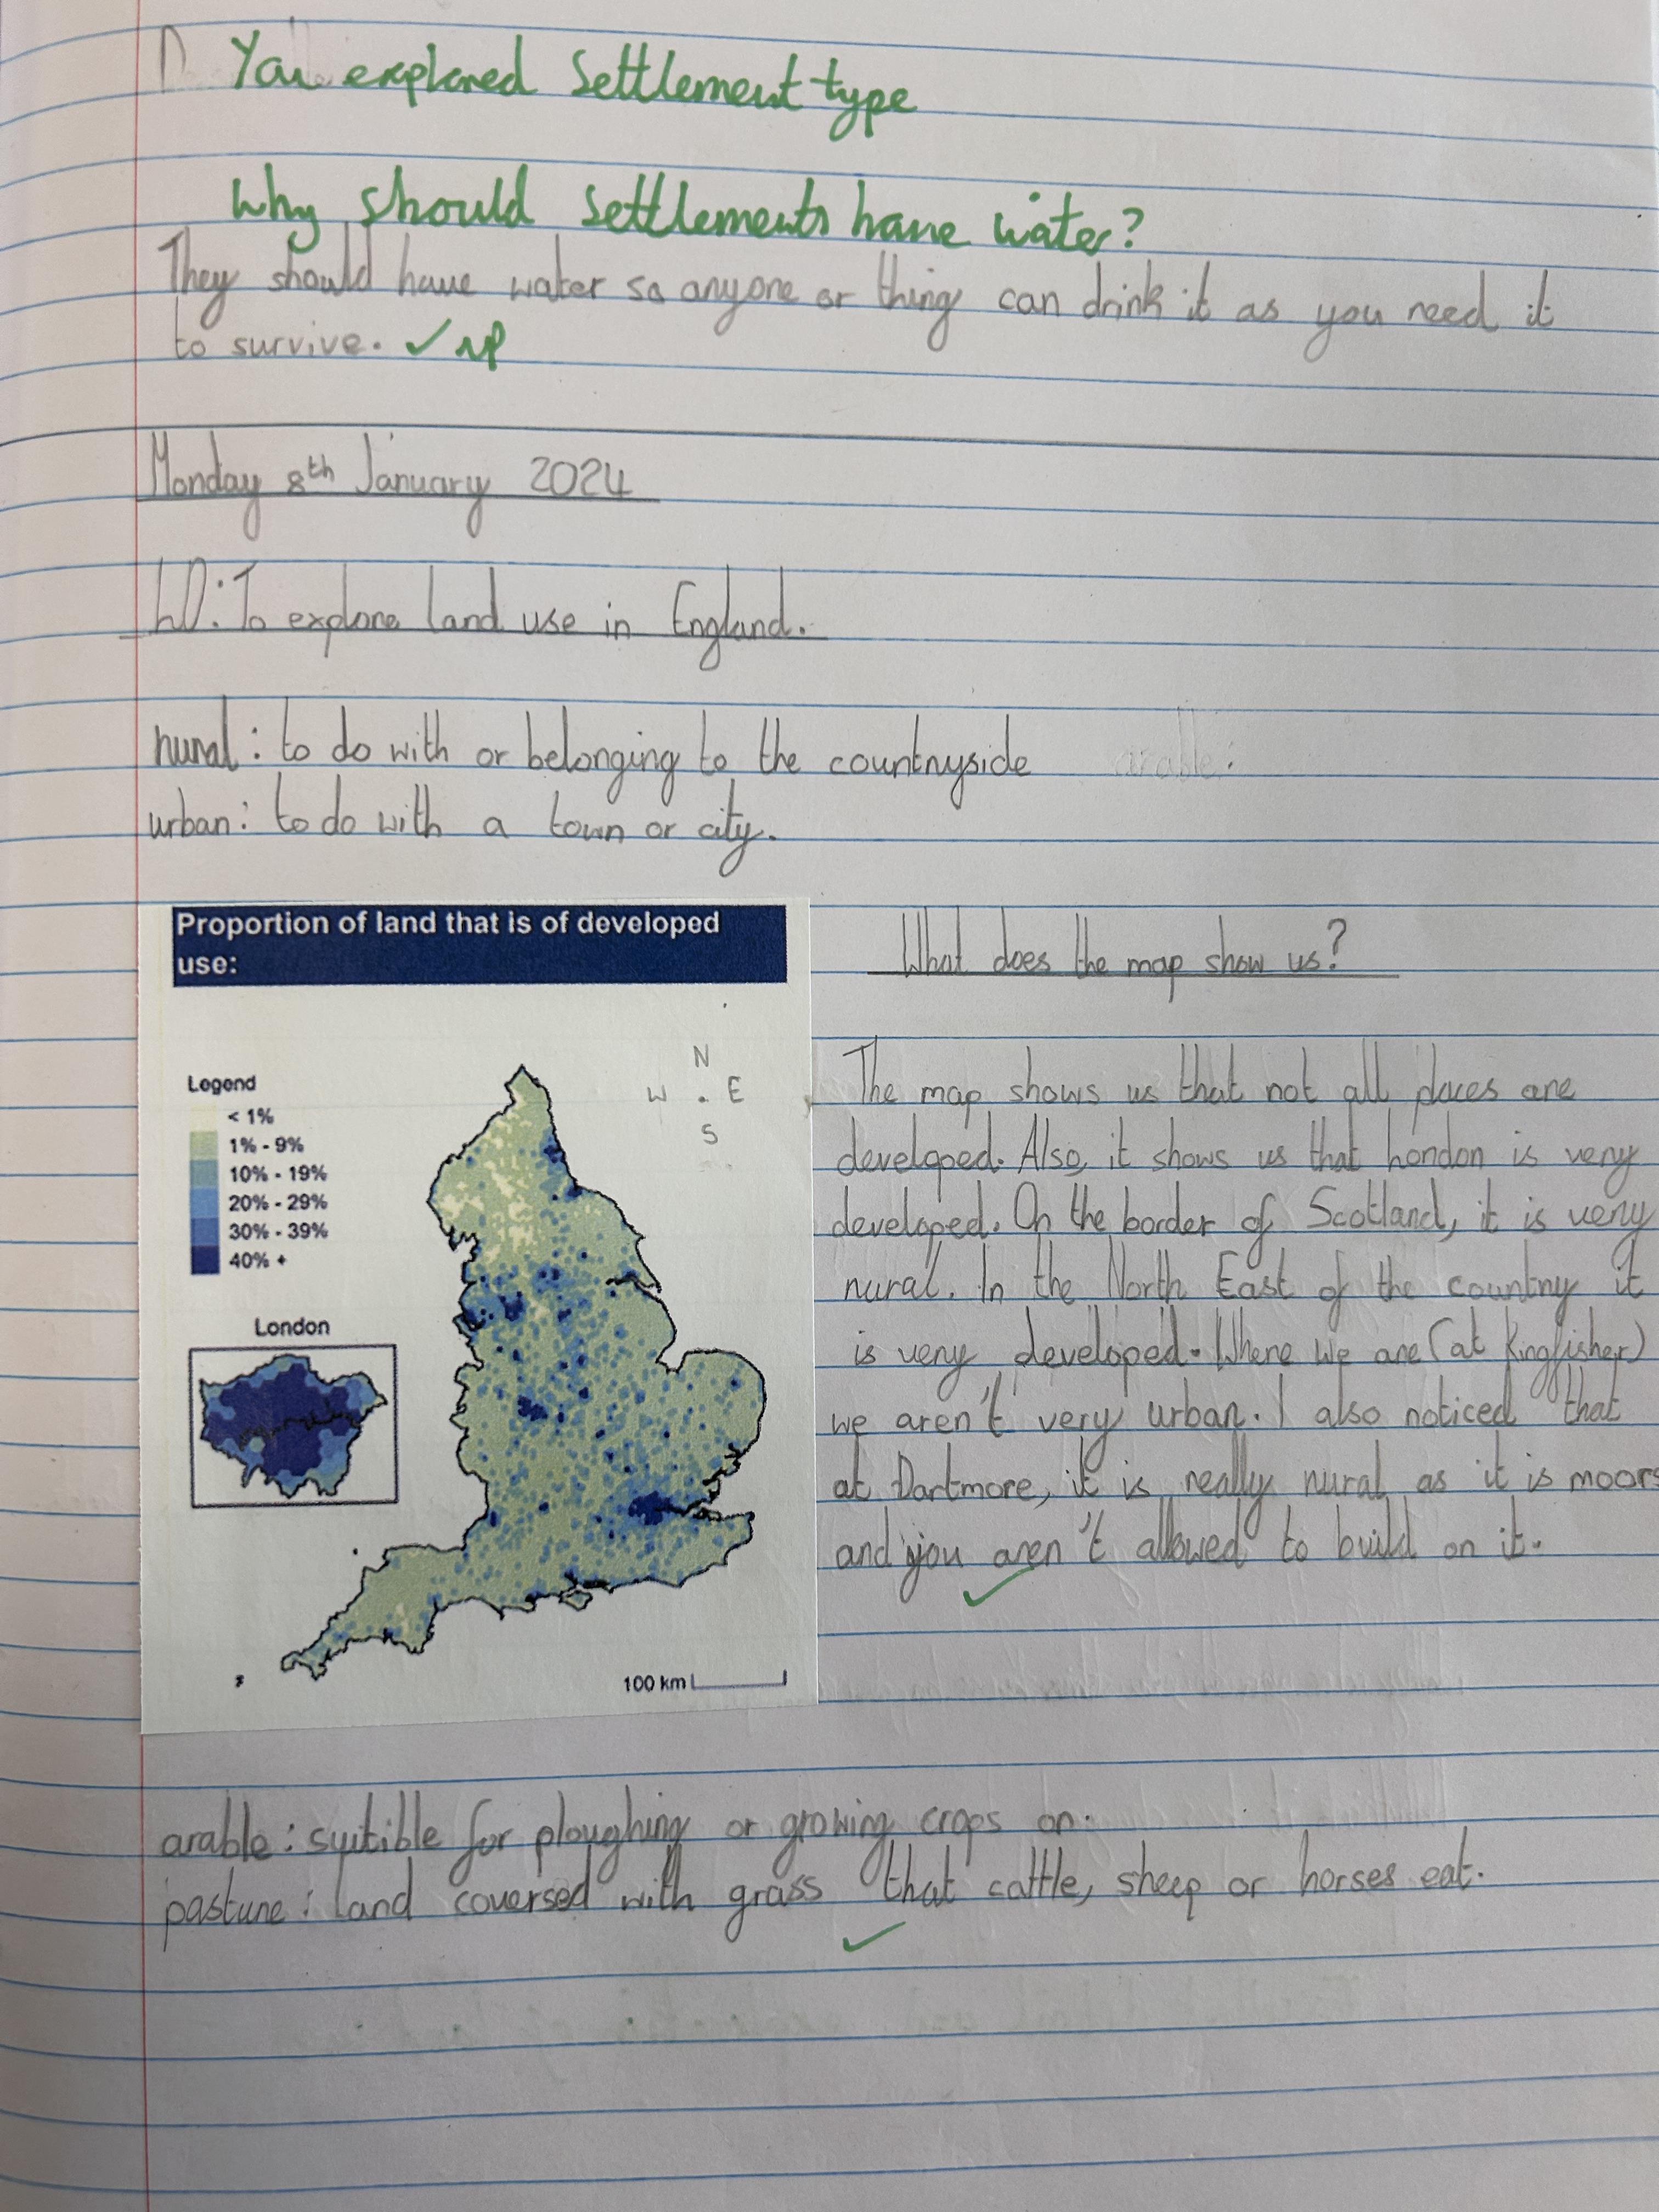 You explored Settlement type
Why should settlements have water?
They should have water so anyone or thing can drink it as you need it
to survive. ✓ NP
Monday 8th January 2024
LO: To explore land use in England.
rural: to do with or belonging to the countryside arable:
urban: to do with a town or city.
Proportion of land that is of developed
use:
Legend
< 1%
1% - 9%
10% - 19%
20% - 29%
30% - 39%
40% +
N
W . E
S
London
100 km
What does the map show us?
The map shows us that not all places are
developed. Also, it shows us that London is very
developed. On the border of Scotland, it is very
rural. In the North East of the country it
is very developed. Where we are (at Kingfisher)
we aren't very urban. I also noticed that
at Dartmore, it is really rural as it is moors
and you aren't allowed to build on it.
arable: suitible for ploughing or growing crops on.
pasture: land coversed with grass that cattle, sheep or horses eat.